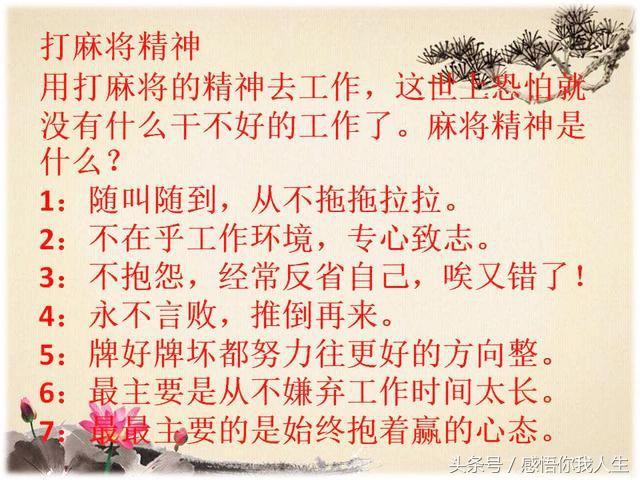 打麻将精神
用打麻将的精神去工作，这世上恐怕就
没有什么干不好的工作了。麻将精神是
什么？
1：随叫随到，从不拖拖拉拉。
2：不在乎工作环境，专心致志。
3：不抱怨，经常反省自己，唉又错了！
4：永不言败，推倒再来。
5：牌好牌坏都努力往更好的方向整。
6：最主要是从不嫌弃工作时间太长。
7：最最主要的是始终抱着赢的心态。
头条号 / 感悟你我人生